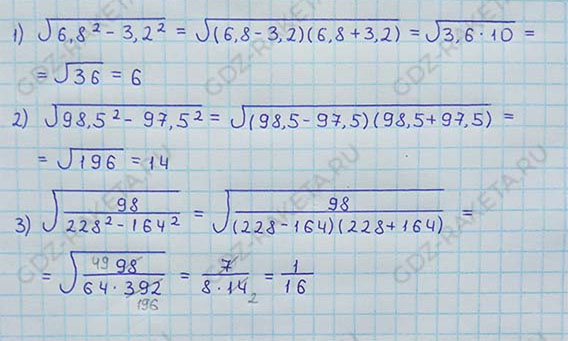 1) √(6,8² - 3,2²) = √((6,8 - 3,2)(6,8 + 3,2)) = √(3,6 · 10) =
= √36 = 6
2) √(98,5² - 97,5²) = √((98,5 - 97,5)(98,5 + 97,5)) =
= √196 = 14
3) √(98/(228² - 164²)) = √(98/((228 - 164)(228 + 164))) =
= √(49 98/(64 · 392 196)) = 7/(8 · 14 2) = 1/16
GDZ-RAKETA.RU